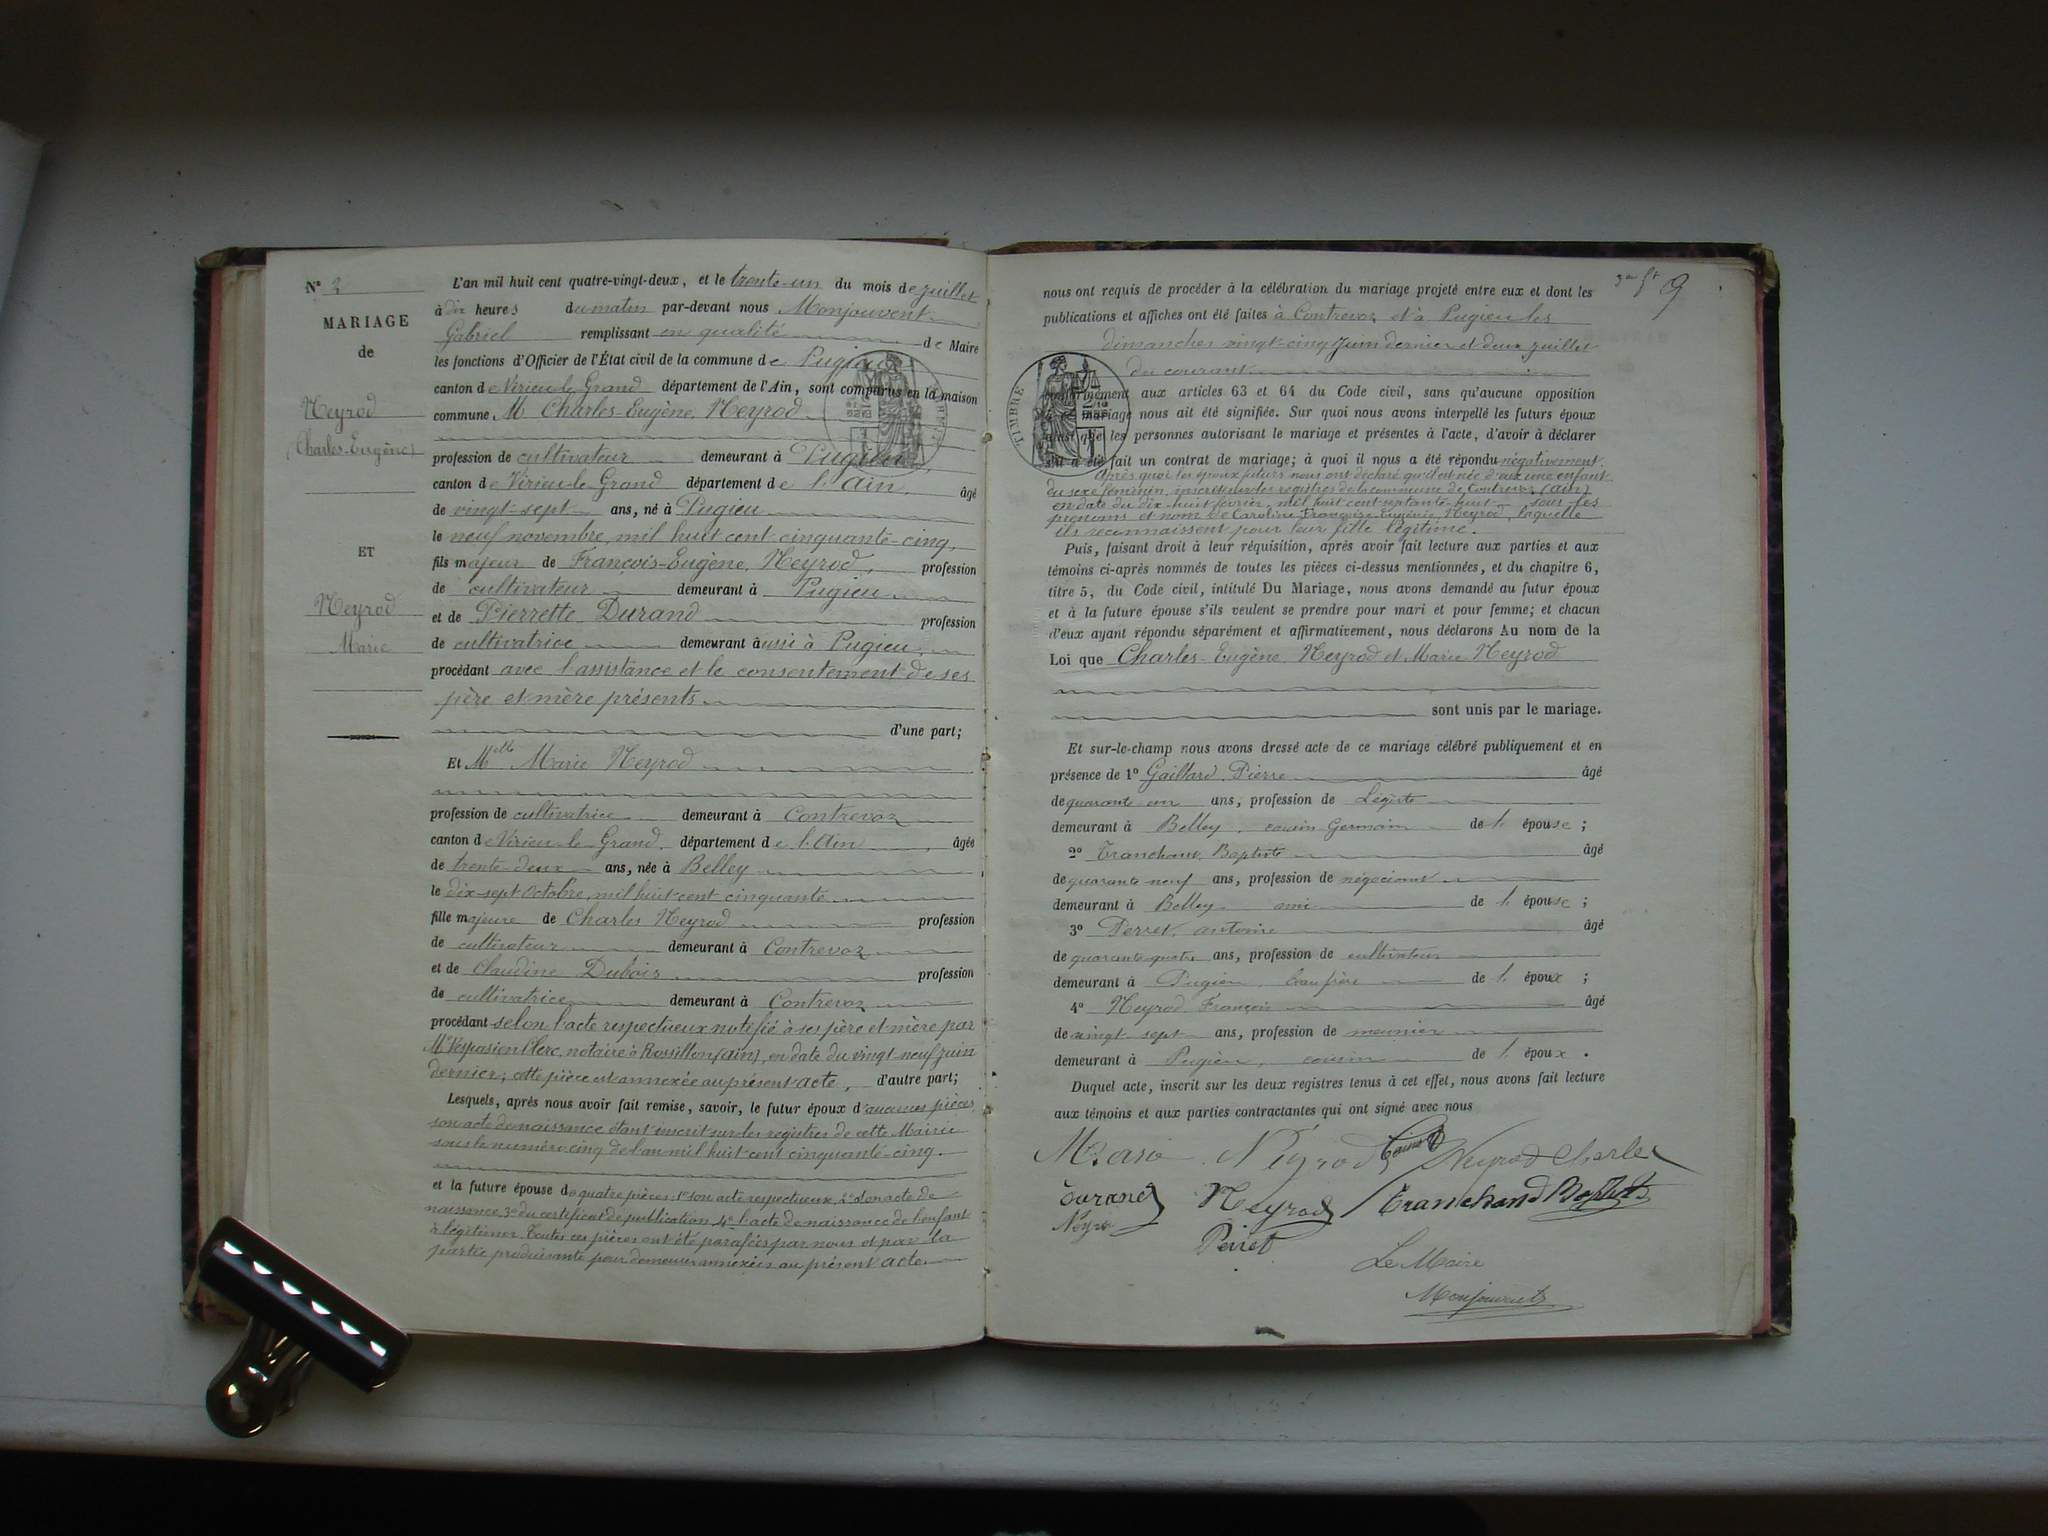 N° 2
MARIAGE
de
Neyrod
(Charles-Eugène)
ET
Neyrod
Marie
L'an mil huit cent quatre-vingt-deux, et le trente-un du mois de juillet
à dix heures du matin par-devant nous Monjouvent
Gabriel remplissant en qualité de Maire
les fonctions d'Officier de l'État civil de la commune de Pugieu
canton de Virieu-le-Grand département de l'Ain, sont comparus en la maison
commune M. Charles-Eugène Neyrod
profession de cultivateur demeurant à Pugieu,
canton de Virieu-le-Grand département de l'Ain, âgé
de vingt-sept ans, né à Pugieu
le neuf novembre, mil huit cent cinquante-cinq,
fils majeur de François-Eugène Neyrod, profession
de cultivateur demeurant à Pugieu
et de Pierrette Durand profession
de cultivatrice demeurant aussi à Pugieu,
procédant avec l'assistance et le consentement de ses
père et mère présents
d'une part;
Et Melle Marie Neyrod
profession de cultivatrice demeurant à Contrevoz
canton de Virieu-le-Grand, département de l'Ain, âgée
de trente-deux ans, née à Belley
le dix-sept Octobre, mil huit cent cinquante
fille majeure de Charles Neyrod profession
de cultivateur demeurant à Contrevoz
et de Claudine Dubois profession
de cultivatrice demeurant à Contrevoz
procédant selon l'acte respectueux notifié à ses père et mère par
Me Vespasien Clerc, notaire à Rossillon (Ain), en date du vingt-neuf juin
dernier; cette pièce est annexée au présent acte, d'autre part;
Lesquels, après nous avoir fait remise, savoir, le futur époux d'aucunes pièces,
son acte de naissance étant inscrit sur les registres de cette Mairie
sous le numéro cinq de l'an mil huit cent cinquante-cinq.
et la future épouse de quatre pièces: 1° son acte respectueux, 2° son acte de
naissance, 3° du certificat de publication, 4° l'acte de naissance de l'enfant
à légitimer. Toutes ces pièces ont été parafées par nous et par la
partie produisante pour demeurer annexées au présent acte
9
nous ont requis de procéder à la célébration du mariage projeté entre eux et dont les
publications et affiches ont été faites à Contrevoz et à Pugieu les
dimanches vingt-cinq Juin dernier et deux juillet
du courant
TIMBRE
conformément aux articles 63 et 64 du Code civil, sans qu'aucune opposition
à ce mariage nous ait été signifiée. Sur quoi nous avons interpellé les futurs époux
ainsi que les personnes autorisant le mariage et présentes à l'acte, d'avoir à déclarer
s'il a été fait un contrat de mariage; à quoi il nous a été répondu négativement.
Après quoi les époux futurs nous ont déclaré qu'il est née d'eux une enfant
du sexe féminin, inscrite sur les registres de la commune de Contrevoz (Ain)
en date du dix-huit février, mil huit cent septante-huit sous les
prénoms et nom de Caroline Françoise Eugénie Neyrod, laquelle
ils reconnaissent pour leur fille légitime.
Puis, faisant droit à leur réquisition, après avoir fait lecture aux parties et aux
témoins ci-après nommés de toutes les pièces ci-dessus mentionnées, et du chapitre 6,
titre 5, du Code civil, intitulé Du Mariage, nous avons demandé au futur époux
et à la future épouse s'ils veulent se prendre pour mari et pour femme; et chacun
d'eux ayant répondu séparément et affirmativement, nous déclarons Au nom de la
Loi que Charles-Eugène Neyrod et Marie Neyrod
sont unis par le mariage.
Et sur-le-champ nous avons dressé acte de ce mariage célébré publiquement et en
présence de 1° Gaillard Pierre âgé
de quarante-un ans, profession de Légiste
demeurant à Belley, cousin-Germain de l'épouse;
2° Tranchant Baptiste âgé
de quarante-neuf ans, profession de négociant
demeurant à Belley ami de l'épouse;
3° Perret Antoine âgé
de quarante-quatre ans, profession de cultivateur
demeurant à Pugieu, beau-frère de l'époux;
4° Neyrod François âgé
de vingt-sept ans, profession de meunier
demeurant à Pugieu, cousin de l'époux.
Duquel acte, inscrit sur les deux registres tenus à cet effet, nous avons fait lecture
aux témoins et aux parties contractantes qui ont signé avec nous
Marie Neyrod Neyrod Charles
Durand Neyrod Tranchand Baptiste
Neyro
Perret
Le Maire
Monjouvent